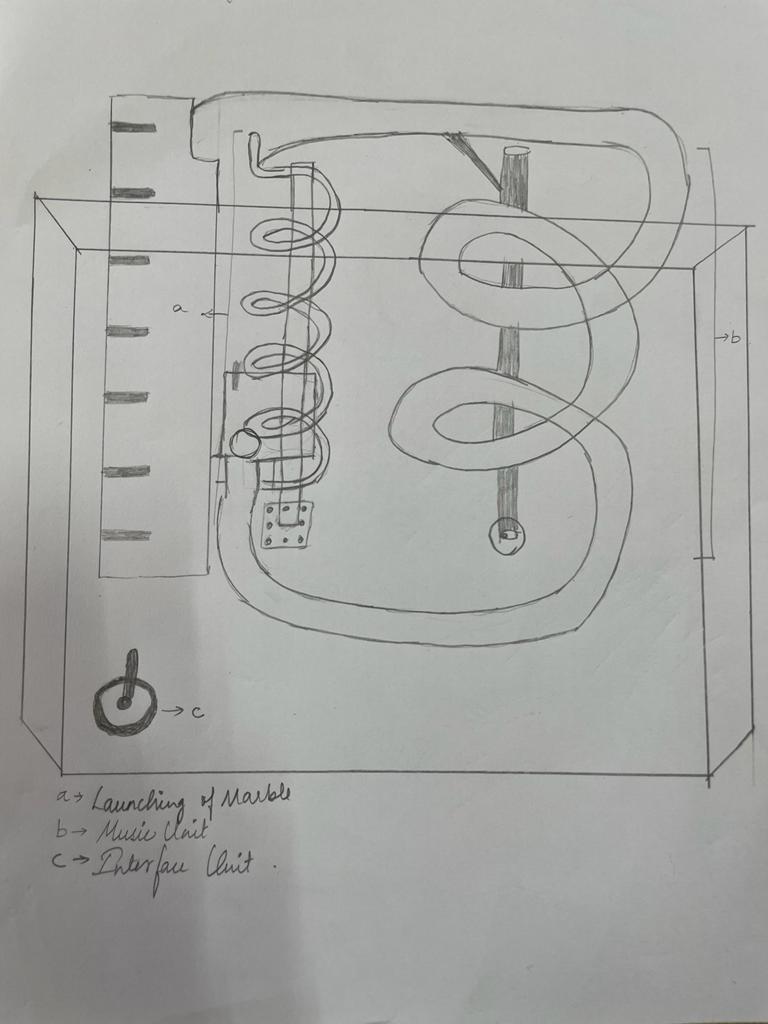 a
→ b
→ c
a → Launching of Marble
b → Music Unit
c → Interface Unit .